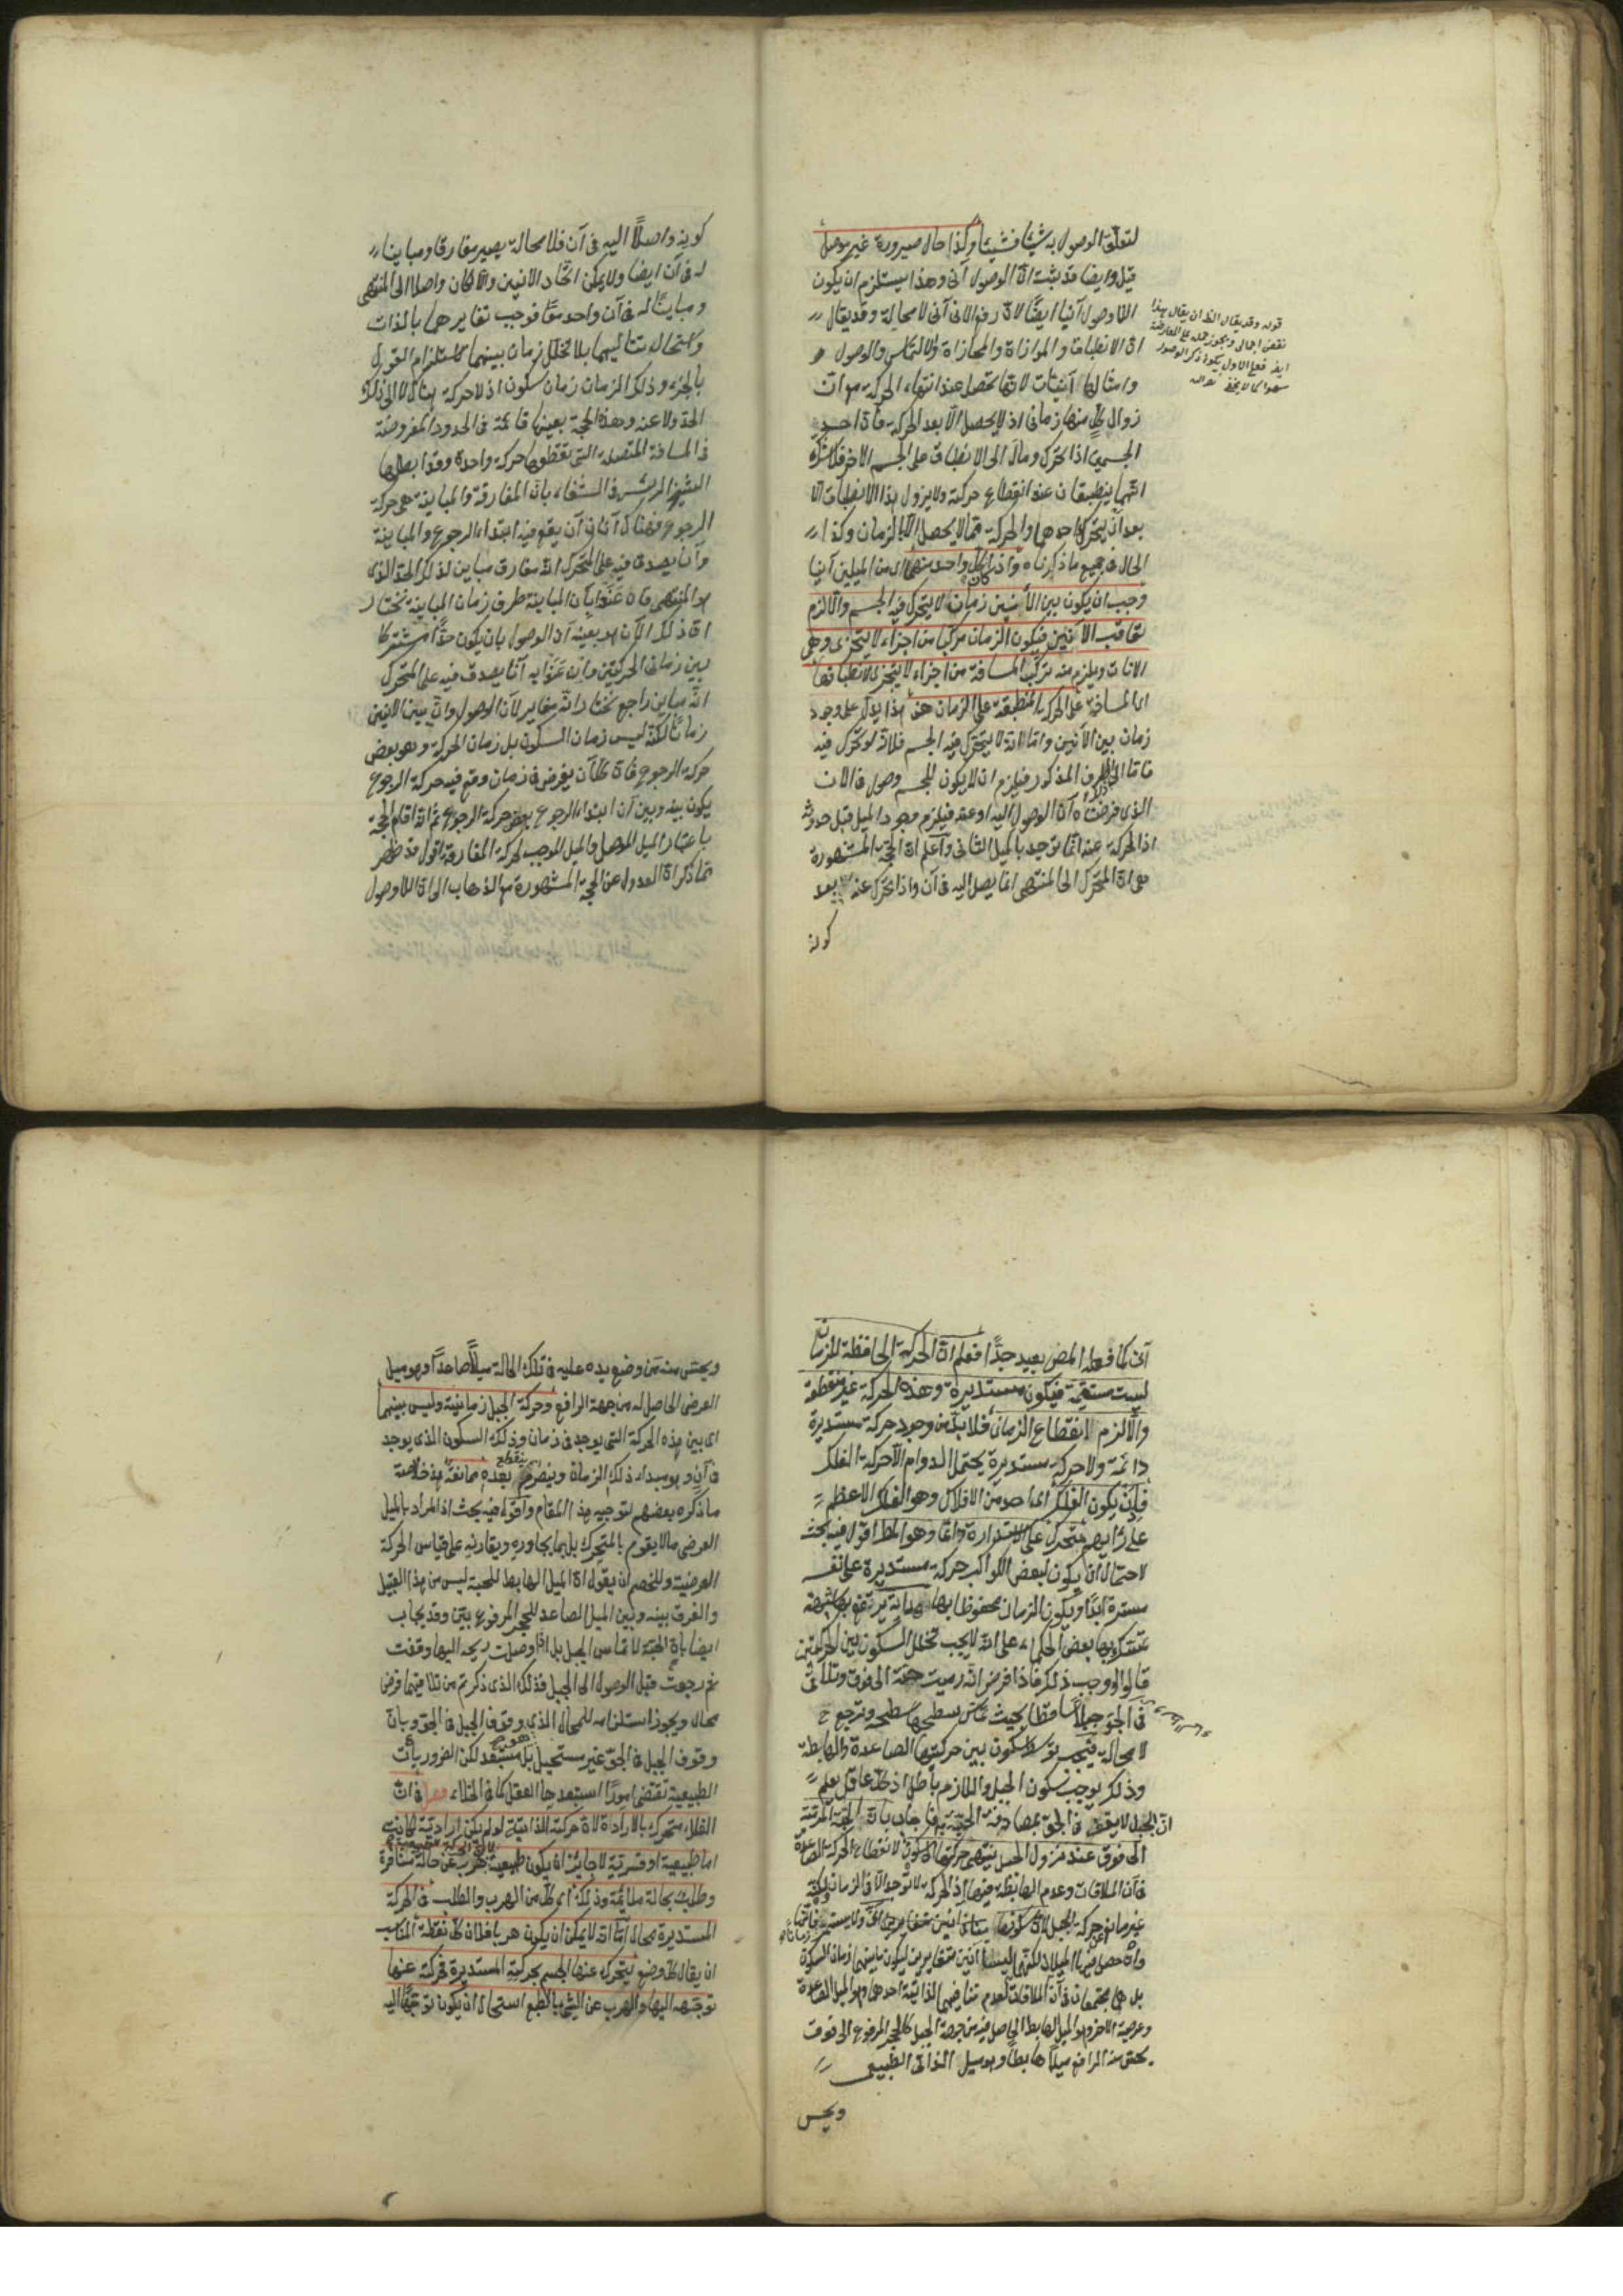 لتعلق الوصول به شيئا فشيئا وكذا حال صيرورة غير موصل
قيل وايضا قد يثبت ان الوصول آنى وهذا يستلزم ان يكون
اللاوصول آنيا ايضًا لان رفع الانى آنى لا محالة وقد يقال
ان الانطباق والموازاة والمحاذاة والتماس والوصول و
وامثالها آنيات لانها تحصل عند انتهاء الحركة مع ان
زوال كل منها زمانى اذ لا يحصل الا بعد الحركة فان احد
الجسمين اذا تحرك ومال الى الانطباق على الجسم الاخر فلا شك
انهما ينطبقان عند انقطاع حركته ولا يزول هذا الانطباق الا
بعد ان يتحرك احدهما والحركة مما لا يحصل الا بالزمان وكذا
الحال فى جميع ما ذكرناه واذا كان كل واحد منهما اى من الميلين آنيا
وجب ان يكون بين الآنين زمان لا يتحرك فيه الجسم والا لزم
تعاقب الآنين فيكون الزمان مركبا من اجزاء لا يتجزى وهى
الانات ويلزم منه تركب المسافة من اجزاء لا يتجزى لانطباقها
اى المسافة على الحركة المنطبقة على الزمان هذا يدل على وجود
زمان بين الآنين واما انه لا يتحرك فيه الجسم فلانه لو تحرك فيه
فاما الى الطرف المذكور فيلزم ان لا يكون للجسم وصول فى الان
الذى فرضناه آن الوصول اليه او عنه فيلزم وجود الميل قبل حدوثه
اذ الحركة عنه انما توجد بالميل الثانى واعلم ان الحجة المشهورة
هى ان المتحرك الى المنتهى انما يصل اليه فى آن واذا تحرك عنه بعد
كونه
قوله وقد يقال الخ ان يقال هذا
نقض اجمالى ويجوز حمله على المعارضة
ايضا فعلى الاول يكون ذكر الوصول
سهوا كما لا يخفى
كونه واصلًا اليه فى آن فلا محالة يصير مفارقا ومباينا
له فى آن ايضا ولا يمكن اتحاد الانين والا لكان واصلا الى المنتهى
ومباينًا له فى آن واحد معًا فوجب تغايرهما بالذات
واستحال تتاليهما بلا تخلل زمان بينهما لاستلزام القول
بالجزء وذلك الزمان زمان سكون اذ لا حركة هناك لا الى ذلك
الحد ولا عنه وهذه الحجة بعينها قائمة فى الحدود المفروضة
فى المسافة المتصلة التى تقطعها حركة واحدة وقد ابطلها
الشيخ الرئيس فى الشفاء بان المفارقة والمباينة هى حركة
الرجوع فهناك آنان آن يقع فيه ابتداء الرجوع والمباينة
وآن يصدق فيه على المتحرك انه مفارق مباين لذلك الحد الذى
هو المنتهى فان عنوا بآن المباينة طرف زمان المباينة نختار
ان ذلك الآن هو بعينه آن الوصول بان يكون حدًا مشتركا
بين زمانى الحركتين وان عنوا به آنا يصدق فيه على المتحرك
انه مباين راجع نختار انه مغاير لآن الوصول وان بين الانين
زمانًا لكنه ليس زمان السكون بل زمان الحركة وهو بعض
حركة الرجوع فان كل آن يفرض فى زمان وقع فيه حركة الرجوع
يكون بينه وبين آن ابتداء الرجوع بعض حركة الرجوع ثم انه اقام الحجة
باعتبار الميل الموصل والميل الموجب لحركة المفارقة اقول قد ظهر
مما ذكر ان العدول عن الحجة المشهورة مع الذهاب الى ان اللاوصول
آنى كما فعله المص بعيد جدًا فعلم ان الحركة الحافظة للزمان
ليست مستقيمة فيكون مستديرة وهذه الحركة غير منقطعة
والا لزم انقطاع الزمان فلا بد من وجود حركة مستديرة
دائمة ولا حركة مستديرة يحتمل الدوام الا حركة الفلك
فاذن يكون الفلك اى واحد من الافلاك وهو الفلك الاعظم
على رأيهم متحرك على الاستدارة دائما وهو المط اقول فيه بحث
لاحتمال ان يكون لبعض الكواكب حركة مستديرة على نفسه
مستمرة ابدًا ويكون الزمان محفوظا بها هداية يرتفع بها شبهة
تمسك بها بعض الحكماء على انه لا يجب تخلل السكون بين الحركتين
قالوا لو وجب ذلك فاذا فرض انه رميت حبة الى فوق وتلاقى
فى الجو جبلًا ساقطا بحيث تماس سطحها سطحه وترجع ح
لا محالة فيجب توسط سكون بين حركتيها الصاعدة والهابطة
وذلك يوجب سكون الجبل واللازم باطل اذ كل عاقل يعلم
ان الجبل لا يقف فى الجو بمصادفة الحبة فاجاب بان الحبة المرمية
الى فوق عند نزول الجبل ينتهى حركتها الى سكون لانقطاع الحركة الصاعدة
فى آن الملاقات وعدم الهابطة فيها اذ الحركة لا توجد الا فى الزمان لكنه
غير مانع حركة الجبل
وان حصل فيها الميلان لكنهما ليسا آنين متغايرين ليكون بينهما زمان السكون
بل هما مجتمعان فى آن الملاقات لعدم تنافيهما لذاتية احدهما وهو الميل الصاعد
وعرضية الاخر وهو الميل الهابط الحاصل فيه من جهة الجبل كالحجر المرفوع الى فوق
يحس منه الرافع ميلًا هابطا وهو ميل الذاتى الطبيعى
ويحس
ويحس منه من وضع يده عليه فى تلك الحالة ميلًا صاعدًا وهو ميل
العرضى الحاصل له من جهة الرافع وحركة الجبل زمانية وليس بينهما
اى بين هذه الحركة التى يوجد فى زمان وذلك السكون الذى يوجد
فى آن وهو مبداء ذلك الزمان وينصرم ينقطع بعده ممانعة هذا خلاصة
ما ذكره بعضهم لتوجيه هذا المقام واقول فيه بحث اذ المراد بالميل
العرضى ما لا يقوم بالمتحرك بل بما يجاوره ويقارنه على قياس الحركة
العرضية وللخصم ان يقول ان الميل الهابط للحبة ليس من هذا القبيل
والفرق بينه وبين الميل الصاعد للحجر المرفوع بيّن وقد يجاب
ايضا بان الحبة لا تماس الجبل بل اذا وصلت ريحه اليها وقفت
ثم رجعت قبل الوصول الى الجبل فذلك الذى ذكرتم من تلاقيهما فرض
محال ويجوز استلزامه للمحال الذى هو وقوف الجبل فى الجو وبان
وقوف الجبل فى الجو غير مستحيل بل مستبعد لكن الضروريات
الطبيعية تقتضى امورًا استبعدها العقل كما فى الخلاء فصل فى ان
الفلك متحرك بالارادة لان حركته الذاتية لو لم يكن ارادية لكانت
اما طبيعية او قسرية لا جائز ان يكون طبيعية لان الحركة الطبيعية هرب عن حالة منافرة
وطلب لحالة ملائمة وذلك اى كل من الهرب والطلب فى الحركة
المستديرة محال اما انه لا يمكن ان يكون هربا فلان كل نقطة المناسب
ان يقال كل وضع يتحرك عنها الجسم بحركته المستديرة فحركته عنها
توجهه اليها والهرب عن الشئ بالطبع استحال ان يكون توجهًا اليه